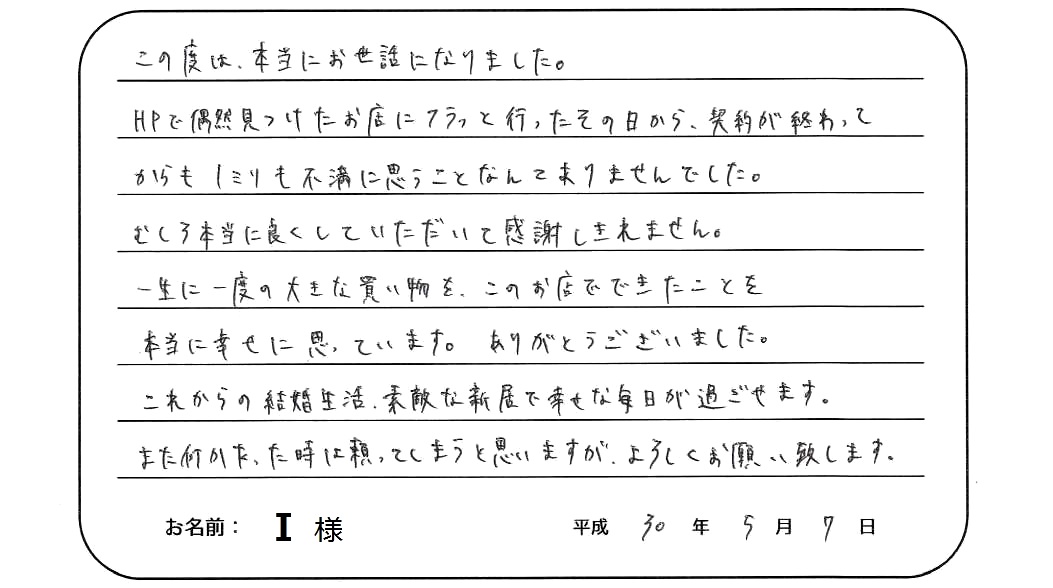 この度は、本当にお世話になりました。
HPで偶然見つけたお店にフラっと行ったその日から、契約が終わって
からも1ミリも不満に思うことなんてありませんでした。
むしろ本当に良くしていただいて感謝しきれません。
一生に一度の大きな買い物を、このお店でできたことを
本当に幸せに思っています。 ありがとうございました。
これからの結婚生活、素敵な新居で幸せな毎日が過ごせます。
また何かあった時は頼ってしまうと思いますが、よろしくお願い致します。
お名前： I 様 平成 30 年 5 月 7 日